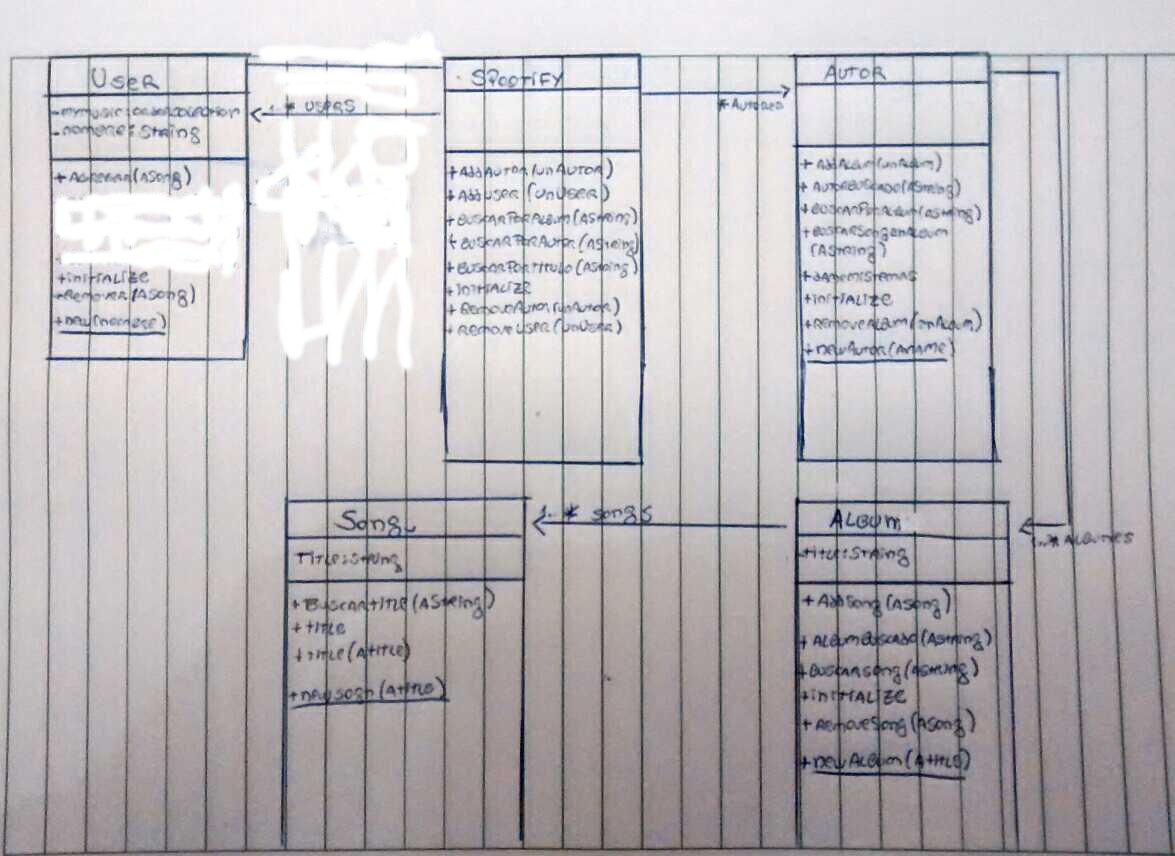 User
- nombre: String
+ Agregar(ASong)
+ initialize
+ Remover(ASong)
1..* users
Spotify
+ AddAutor(unAutor)
+ AddUser(unUser)
+ BuscarPorAlbum(AString)
+ BuscarPorAutor(AString)
+ BuscarPorTitulo(AString)
+ initialize
+ RemoveAutor(unAutor)
+ RemoveUser(unUser)
* Autores
Autor
+ AddAlbum(unAlbum)
+ AutorBuscado(AString)
+ BuscarPorAlbum(AString)
+ BuscarSongEnAlbum
(AString)
+ initialize
+ RemoveAlbum(unAlbum)
+ newAutor(AName)
1..* Albumes
Song
Title: String
+ BuscarTitle(AString)
+ title
+ title(ATitle)
+ newSogn(ATitle)
1..* songs
Album
title: String
+ AddSong(ASong)
+ AlbumBuscado(AString)
+ BuscarSong(AString)
+ initialize
+ RemoveSong(ASong)
+ newAlbum(ATitle)